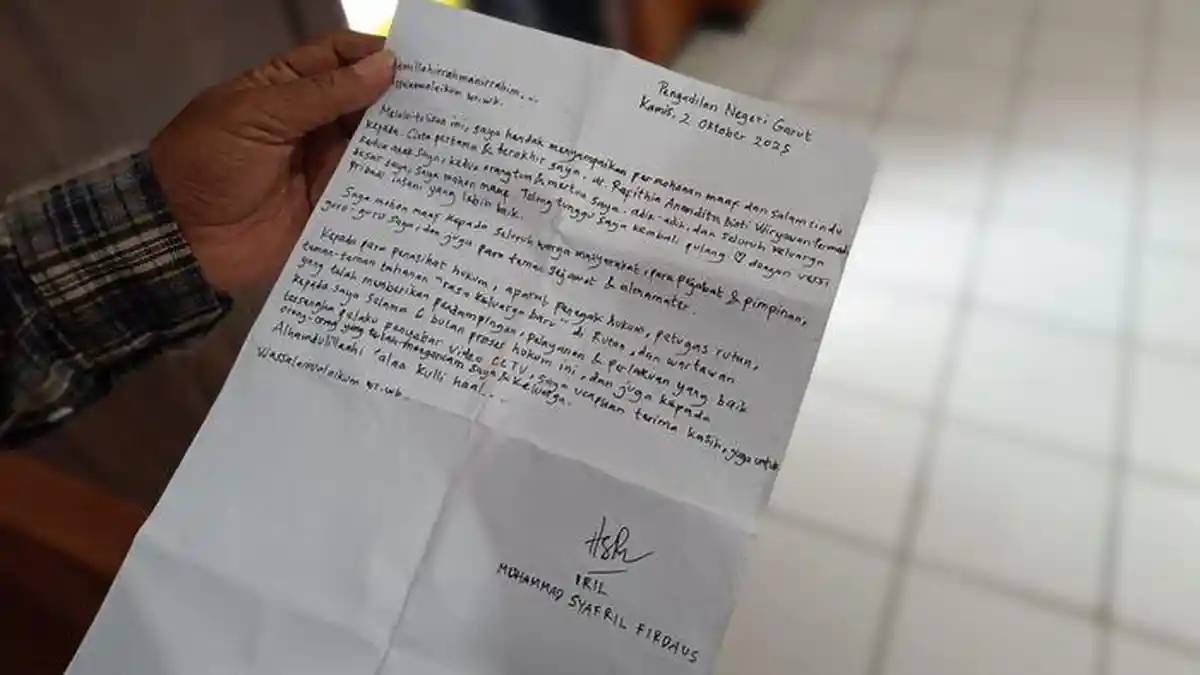 Pengadilan Negeri Garut
Kamis, 2 Oktober 2025
wr.wb.
Melalui tulisan ini, saya hendak menyampaikan permohonan maaf dan salam rindu
kepada. Cinta pertama & terakhir saya. dr. Rasithia Anandita Wiryawan
kedua anak saya, kedua orangtua & mertua saya. adik-adik, dan seluruh keluarga
besar saya, saya mohon maaf. Tolong tunggu saya kembali pulang ♡ dengan versi
pribadi insani yang lebih baik.
Saya mohon maaf kepada seluruh warga masyarakat, para pejabat & pimpinan,
guru-guru saya, dan juga para teman sejawat & almamater.
Kepada para penasihat hukum, aparat penegak hukum, petugas rutan,
teman-teman tahanan "rasa keluarga baru" di Rutan, dan wartawan
yang telah memberikan pendampingan, pelayanan & perlakuan yang baik
kepada saya selama 6 bulan proses hukum ini, dan juga kepada
tersangka pelaku penyebar Video CCTV, saya ucapkan terima kasih, juga untuk
orang-orang yang telah mengancam saya & keluarga.
Alhamdulillaahi 'alaa kulli haal...
Wassalamualaikum wr.wb.
IRIL
MOHAMMAD SYAFRIL FIRDAUS